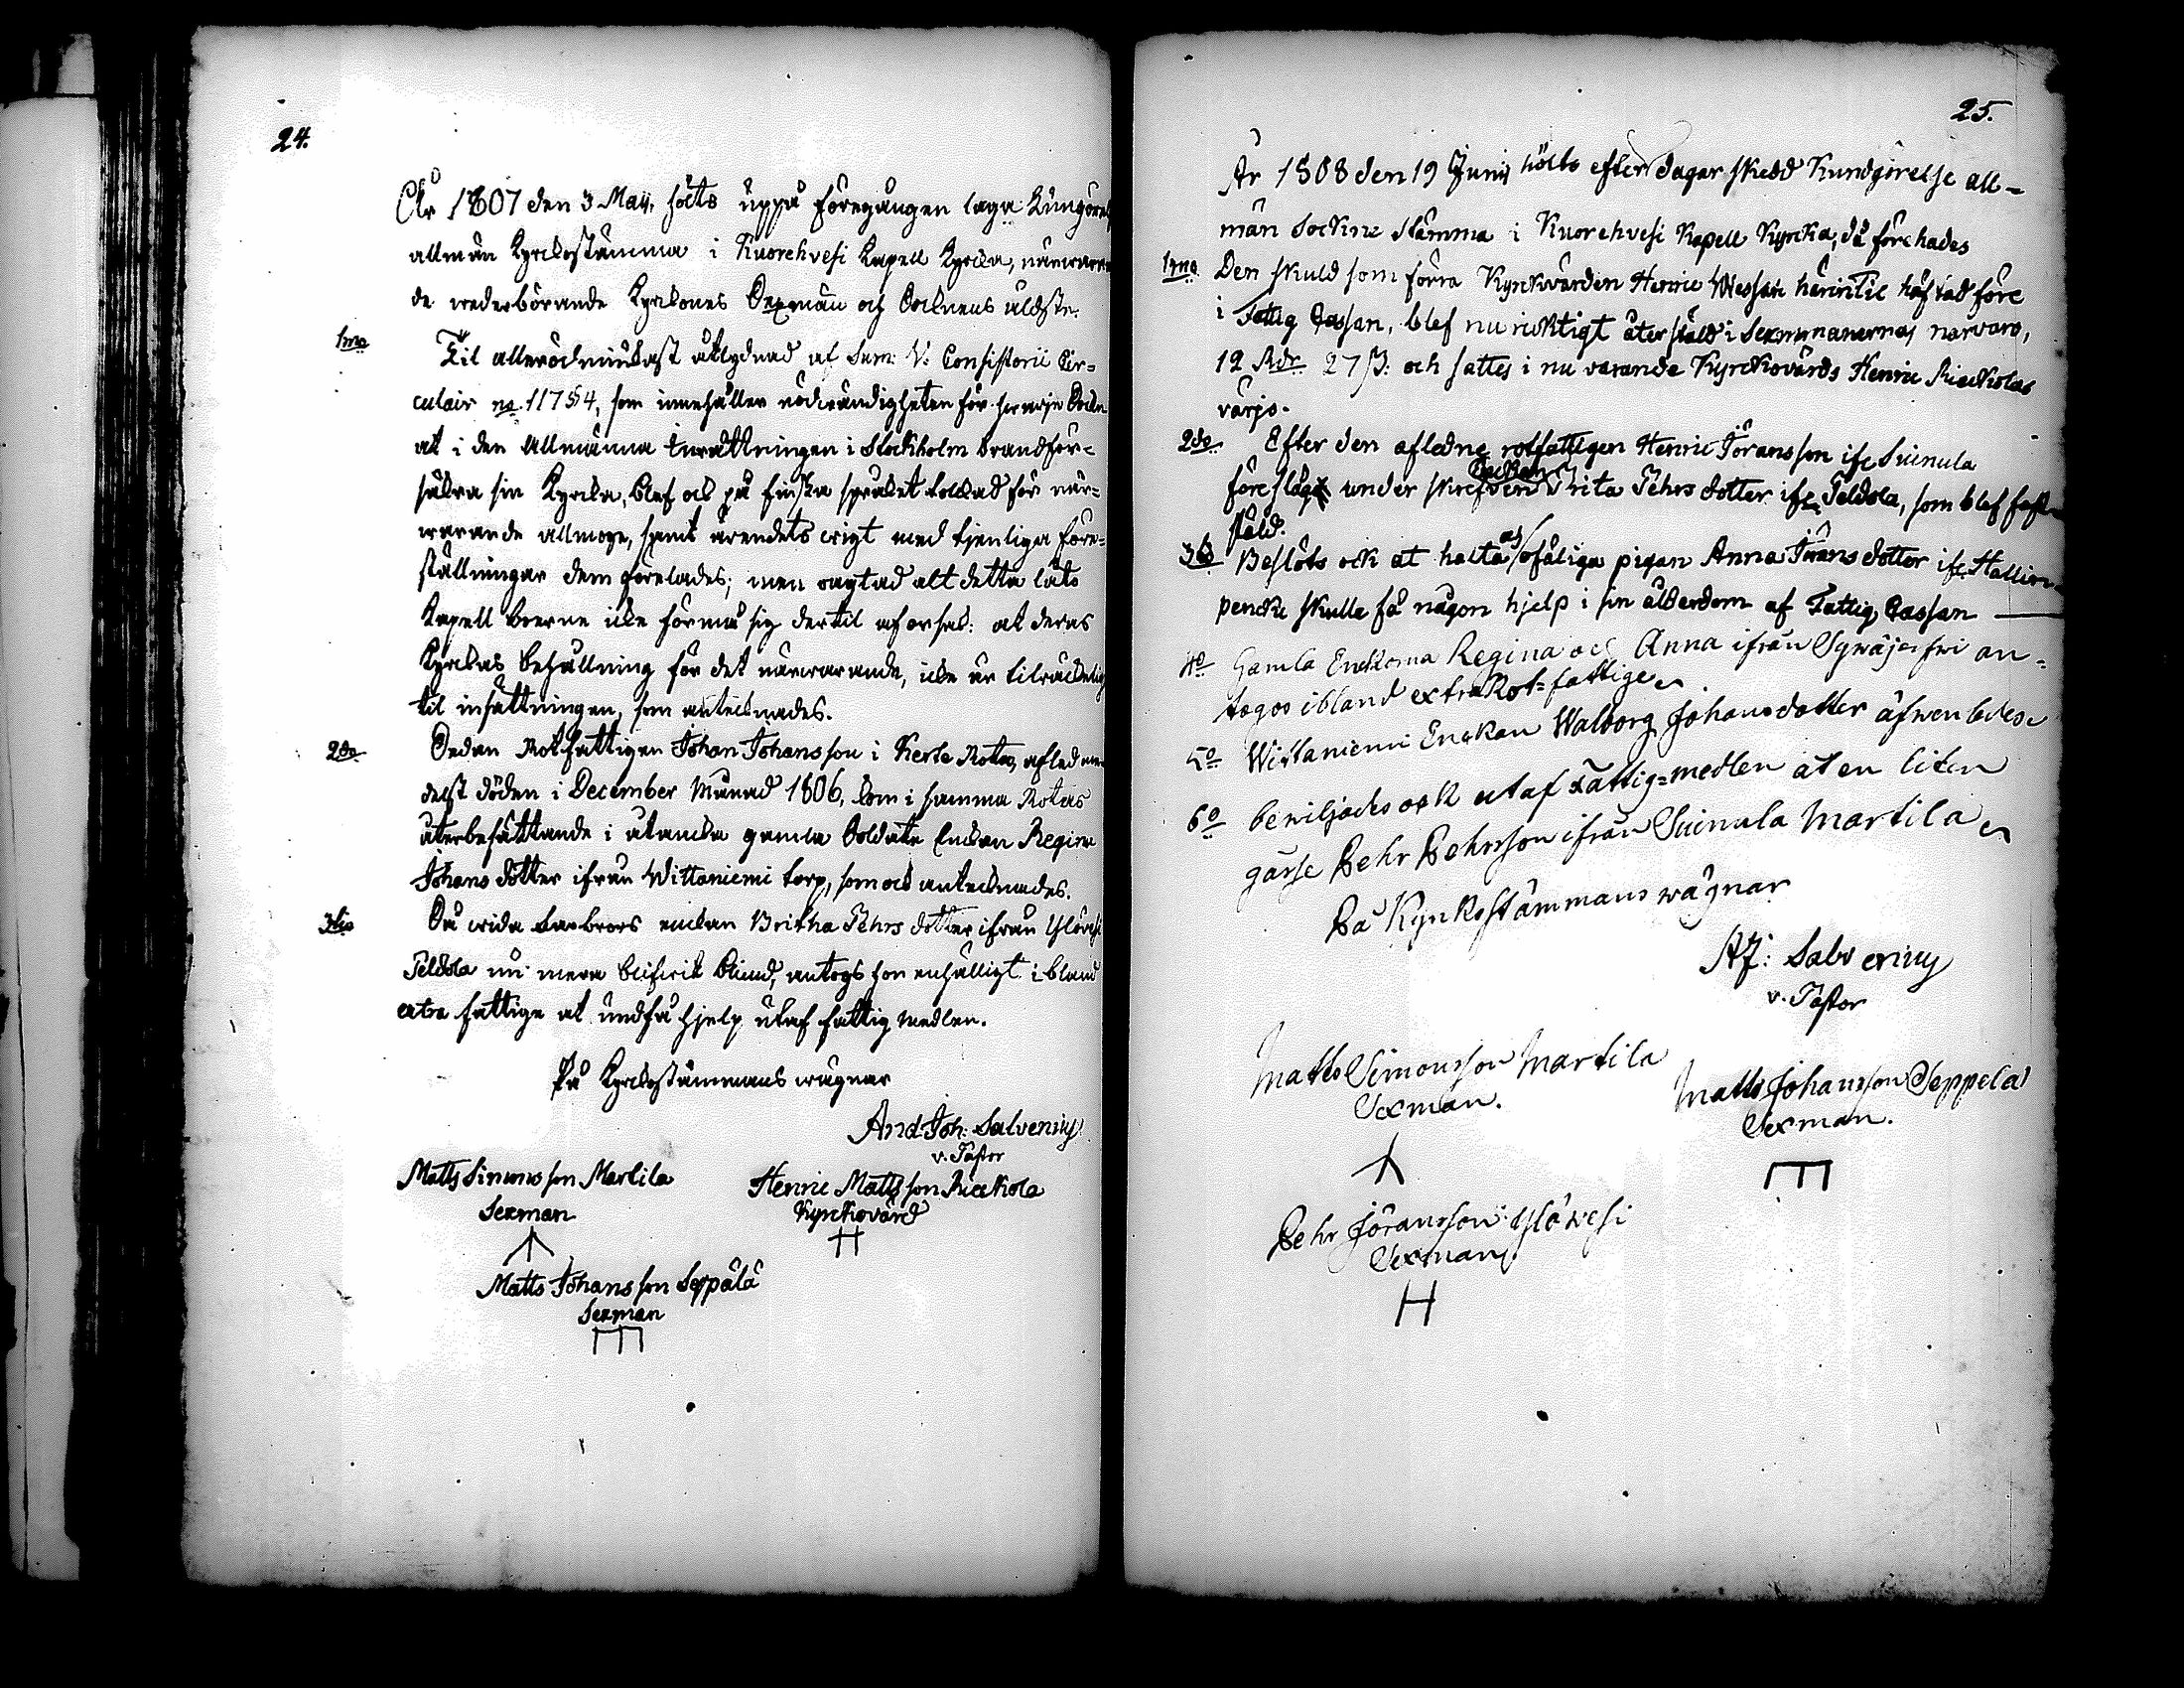 24.
År 1807 den 3 Maij, hölts uppå föregången laga Kungörels
allmän Kyrckostämma i Kuorehvesi Kapell Kyrcka, närwaran
de wederbörande Kyrckones Sexmän och Socknens äldste.
1mo Til allerödmiukast åtlydnad af Sum: V: Consistorii Cir=
culair no 117 § 4, som innehåller nödwändigheten för hwarje Sockn
at i den Allmänna Inrättningen i Stockholm brandför=
säkra sin Kyrcka, blef ock på finska språket tolckad för när=
warande allmoge, samt ärendets wigt med tjenliga före=
ställningar dem förelades; men oagtad alt detta läto
Kapell boerne icke förmå sig dertil af orsak: at deras
Kyrckas behållning för det närwarande, icke är tilräckelig
til insättningen, som antecknades.
2do Sedan Rotfattigen Johan Johansson i Kerte Rota, afled me=
delst döden i December Månad 1806, kom i samma Rotas
återbesättande i åtancka gamla Soldate Enckan Regina
Johans dotter ifrån Wittaniemi torp, som ock antecknades.
3tio Då wida farbrors enckan Britha Pehrs dotter ifrån Ylöwesi
Peldola nu mera blifwit blind, antogs hon enhälligt i bland
extra fattige at undfå hjelp utaf fattig medlen.
På Kyrckostämmans wägnar
And Joh: Salvenius
v. Pastor
Matts Simonsson Martila
Sexman
Henric Mattsson Rieckola
Kyrckovärd
Matts Johansson Seppälä
Sexman
25.
År 1808 den 19 Junij hölts efter dagar skedd Kundgörelse all=
män Sockne stämma i Kuorehvesi Kapell Kyrcka, då förehades
1mo Den skuld som förra Kyrckvärden Henric Wessari härintil häftad före
i Fattig Cassan, blef nu ricktigt återstäld i Sexmännernas närvaro,
12 Rdr 27 ß: och sattes i nu varande Kyrckovärds Henric Rieckolas
värjo.
2do Efter den afledne rotfattigen Henric Göransson ifr Suinula
föreslogs under skrefven Enckan Brita Pehrs dotter ifr Peldola, som blef fast=
stäld.
3o Beslöts ock at halta och ofäliga pigan Anna Görans dotter ifr Hallin
pencki skulle få någon hjelp i sin ålderdom af Fattig Cassan
4o Gamla Enckorna Regina och Anna ifrån Sywäjerfwi an=
togos ibland extra Rot=fattige
5o Wittaniemi Enckan Walborg Johansdotter äfwenledes
6o bewiljades ock utaf Fattig=medlen åt en liten
gåsse Pehr Pehrsson ifrån Suinula Martila
På Kyrkostämmans wägnar
AJ: Salvenius
v. Pastor
Matts Simonsson Martila
Sexman.
Matts Johansson Seppelä
Sexman.
Pehr Göransson Ylöwesi
Sexman